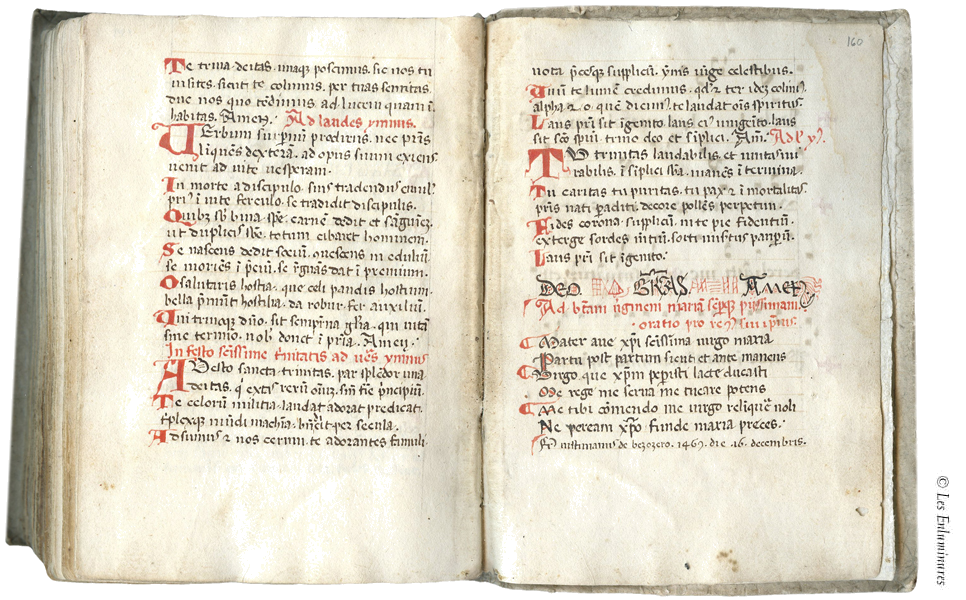 Te trina deitas unaq poscimus. sic nos tu
visites. sicut te colimus. per tuas semitas
duc nos quo tendimus. ad lucem quam i
habitas. Amen. Ad laudes ymnus.
Verbum supnu prodiens. nec pris
linques dextera. ad opus suum exiens
venit ad vite vesperam.
In morte a discipulo. suis tradendus emul
pri i vite ferculo. se tradidit discipulis.
Quibz sb bina spe. carne dedit et sanguinez
ut duplicis sbe. totum cibaret hominem.
Se nascens dedit sociu. convescens in eduliu
se moriens i preciu. se regnas dat i premium.
O salutaris hostia. que celi pandis hostium
bella pmut hostilia. da robur fer auxiliu.
Uni trinoque dno. sit sempitna glia. qui vita
sine termino. nob donet i pria. Amen.
In festo scissime trinitatis ad ves ymnus
Adesto sancta trinitas. par spledor una
deitas. q extas reru omiuz. sin fie pncipiu.
Te celoru militia. laudat adorat predicat.
tplexque mudi machia. bndicit per secula.
Adsumus et nos cernui. te adorantes famuli
160
vota pcesq supplicu. ymnis iunge celestibus.
Unu te lumen credimus. qd et ter idez colimus
alpha et o. que dicimus. te laudat ois spiritus.
Laus pri sit igenito. laus ei unigeito. laus
sit sco spui. trino deo et siplici. Am. Ad l y
Tu trinitas laudabilis. et unitas mi
rabilis. i siplici sba. manes i termina.
Tu caritas tu puritas. tu pax et imortalitas
pris nati paditi. decore polles perpetim.
Fides corona supplicu. in te pie fidentiu.
exterge sordes metiu. sorti iustus panperu.
Laus pri sit igenito.
DEO GRAS. Amen
Ad btam virginem maria semperque
oratio pro
Mater ave xpi scissima virgo maria
Partu post partum sicut et ante manens
Virgo que xpm peperisti lacte ducasti
Me rege me serva me tueare potens
Me tibi comendo me virgo relinque noli
Ne peream xpo funde maria preces.
Fr iustinianus de bezozero. 1467. die. 16. decembris.
© Les Enluminures